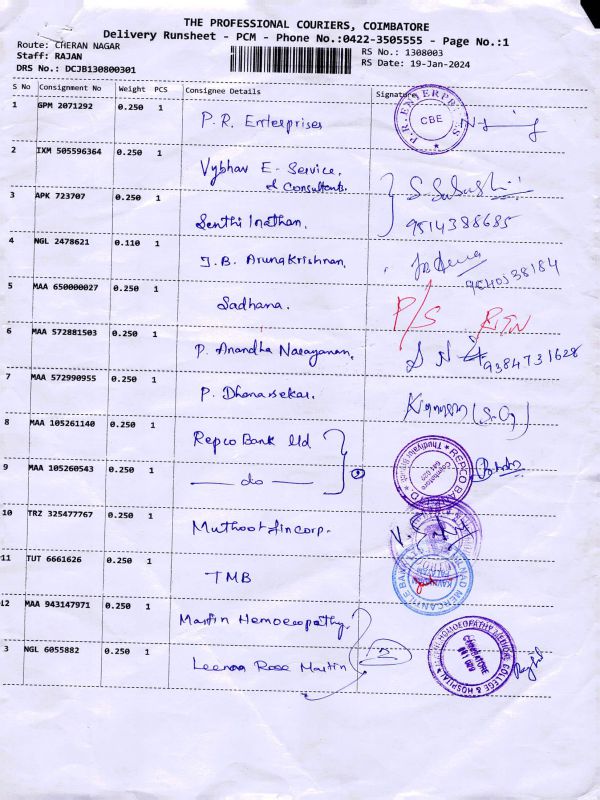 THE PROFESSIONAL COURIERS, COIMBATORE
Delivery Runsheet - PCM - Phone No.:0422-3505555 - Page No.:1
Route: CHERAN NAGAR RS No.: 1308003
Staff: RAJAN RS Date: 19-Jan-2024
DRS No.: DCJB130800301
S No Consignment No Weight PCS Consignee Details Signature
1 GPM 2071292 0.250 1 P.R. Enterprises P.R. ENTERPRISES CBE
2 IXM 505596364 0.250 1 Vybhav E-Service.
& Consultants.
3 APK 723707 0.250 1 Senthilnathan. 9514388685
4 NGL 2478621 0.110 1 J.B. Arunakrishnan.
5 MAA 650000027 0.250 1 Sadhana. P/S RTN
6 MAA 572881503 0.250 1 P. Anandha Narayanan. 9384731628
7 MAA 572990955 0.250 1 P. Dhanasekar.
8 MAA 105261140 0.250 1 Repco Bank ltd REPCO BANK Coimbatore
9 MAA 105260543 0.250 1 do
10 TRZ 325477767 0.250 1 Muthoot fincorp.
11 TUT 6661626 0.250 1 TMB
12 MAA 943147971 0.250 1 Martin Homoeopathy. COLLEGE & HOSPITAL COIMBATORE
3 NGL 6055882 0.250 1 Leemaa Rose Martin